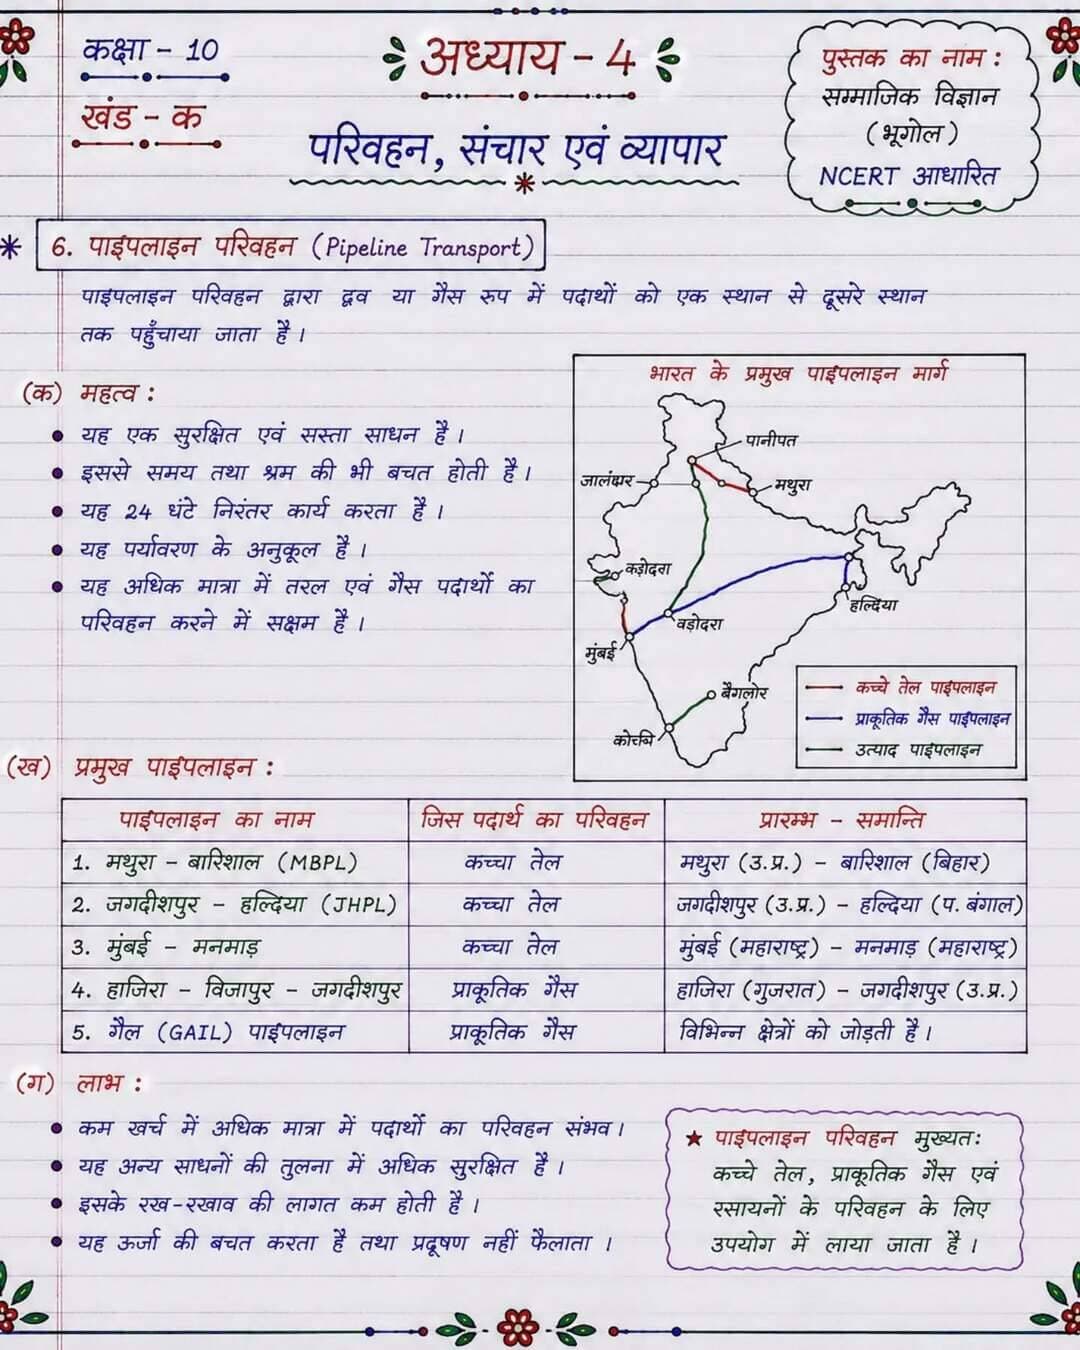 कक्षा - 10
खंड - क
अध्याय - 4
परिवहन, संचार एवं व्यापार
पुस्तक का नाम :
सम्माजिक विज्ञान
(भूगोल)
NCERT आधारित
6. पाईपलाइन परिवहन (Pipeline Transport)
पाइपलाइन परिवहन द्वारा द्रव या गैस रुप में पदाथों को एक स्थान से दूसरे स्थान
तक पहुँचाया जाता है।
(क) महत्व :
• यह एक सुरक्षित एवं सस्ता साधन है।
• इससे समय तथा श्रम की भी बचत होती है।
• यह 24 घंटे निरंतर कार्य करता है।
• यह पर्यावरण के अनुकूल है।
• यह अधिक मात्रा में तरल एवं गैस पदार्थो का
परिवहन करने में सक्षम है।
भारत के प्रमुख पाईपलाइन मार्ग
पानीपत
जालंधर
मथुरा
कड़ोदरा
हल्दिया
वड़ोदरा
मुंबई
बैगलोर
कोच्चि
कच्चे तेल पाईपलाइन
प्राकृतिक गैस पाईपलाइन
उत्पाद पाईपलाइन
(ख) प्रमुख पाईपलाइन :
पाईपलाइन का नाम जिस पदार्थ का परिवहन प्रारम्भ - समान्ति
1. मथुरा - बारिशाल (MBPL) कच्चा तेल मथुरा (उ.प्र.) - बारिशाल (बिहार)
2. जगदीशपुर - हल्दिया (JHPL) कच्चा तेल जगदीशपुर (उ.प्र.) - हल्दिया (प. बंगाल)
3. मुंबई - मनमाड़ कच्चा तेल मुंबई (महाराष्ट्र) - मनमाड़ (महाराष्ट्र)
4. हाजिरा - विजापुर - जगदीशपुर प्राकृतिक गैस हाजिरा (गुजरात) - जगदीशपुर (उ.प्र.)
5. गैल (GAIL) पाईपलाइन प्राकृतिक गैस विभिन्न क्षेत्रों को जोड़ती है।
(ग) लाभ :
• कम खर्च में अधिक मात्रा में पदार्थों का परिवहन संभव।
• यह अन्य साधनों की तुलना में अधिक सुरक्षित है।
• इसके रख-रखाव की लागत कम होती है।
• यह ऊर्जा की बचत करता है तथा प्रदूषण नहीं फैलाता।
★ पाईपलाइन परिवहन मुख्यत:
कच्चे तेल, प्राकृतिक गैस एवं
रसायनों के परिवहन के लिए
उपयोग में लाया जाता है।